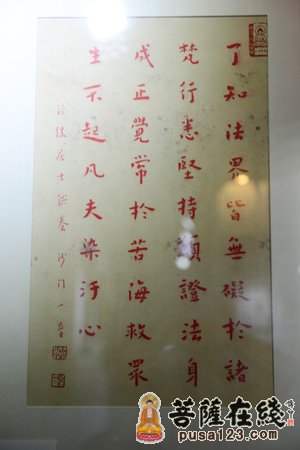 了知法界皆無礙於諸
梵行悉堅持願證法身
成正覺常於苦海救眾
生不起凡夫染汙心
居士供養 沙門一音
菩薩在綫
pusa123.com